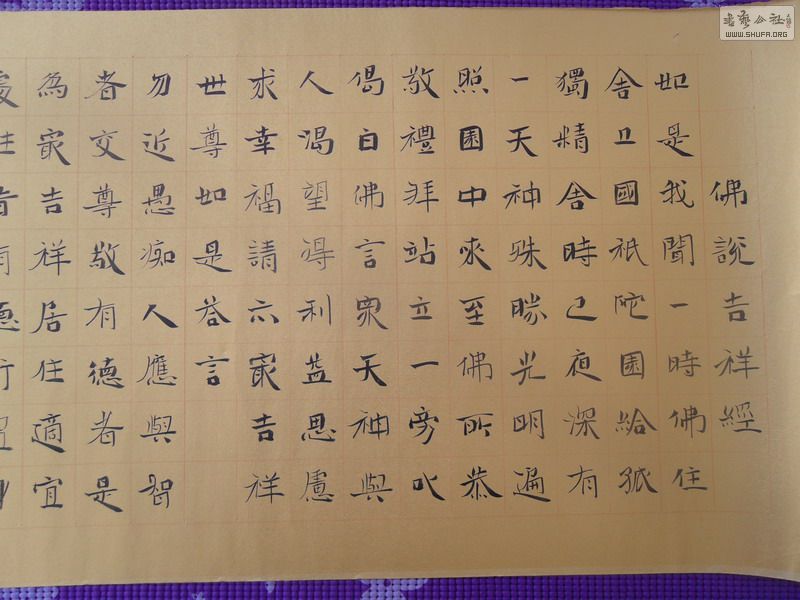 佛說吉祥經
如是我聞一時佛住
舍卫國祇陀園給孤
獨精舍時已夜深有
一天神殊勝光明遍
照園中來至佛所恭
敬禮拜站立一旁以
偈白佛言眾天神與
人渴望得利益思慮
求幸福請示最吉祥
世尊如是答言
勿近愚痴人應與智
者交尊敬有德者是
為最吉祥居住適宜
書藝公社
WWW.SHUFA.ORG